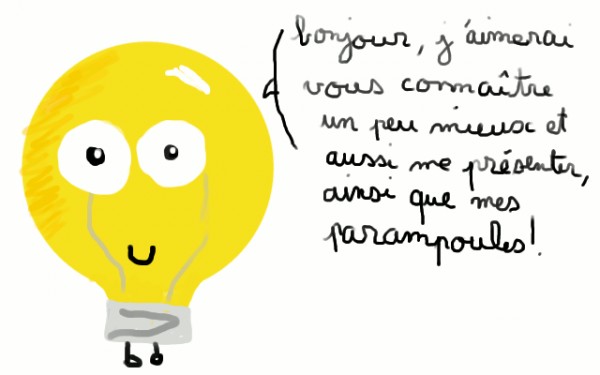 bonjour, j'aimerai
vous connaître
un peu mieux et
aussi me présenter,
ainsi que mes
parampoules!